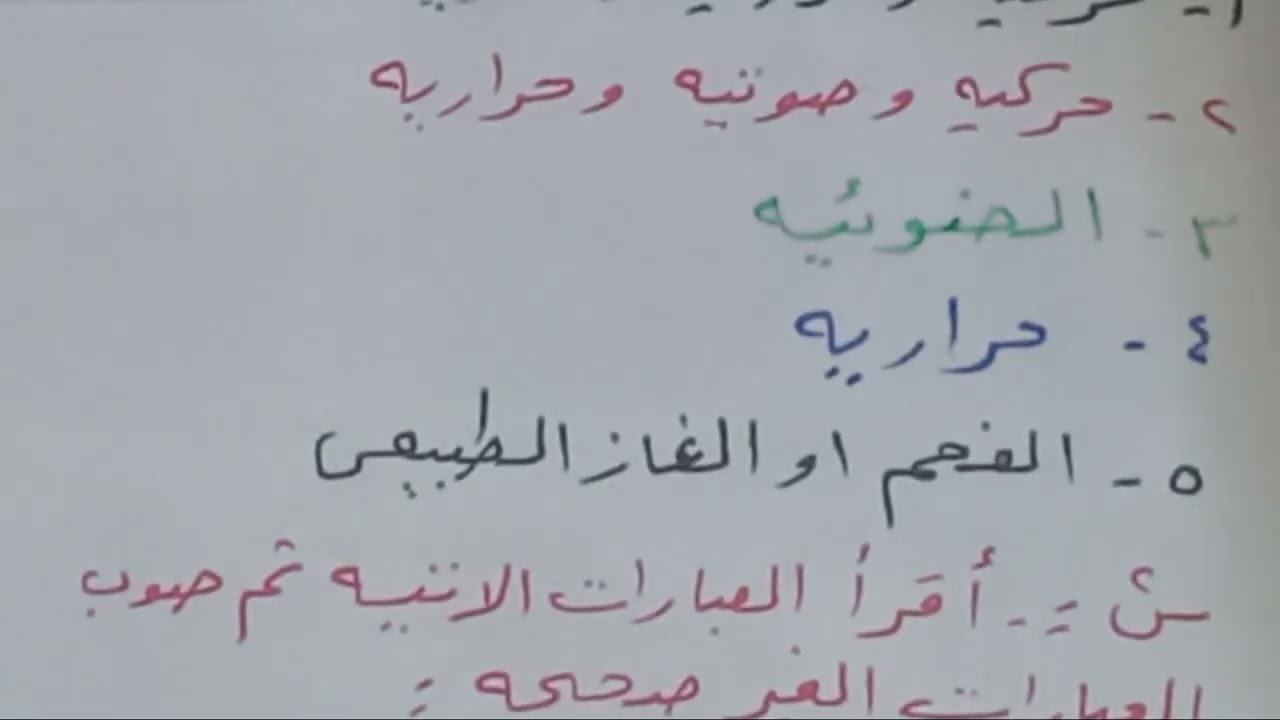 ٢ - حركيه و صوتيه وحراريه
٣ - الضوئيه
٤ - حراريه
٥ - الفحم او الغاز الطبيعي
س٢ :- أقرأ العبارات الاتيه ثم صوب
العبارات الغير صحيحه :